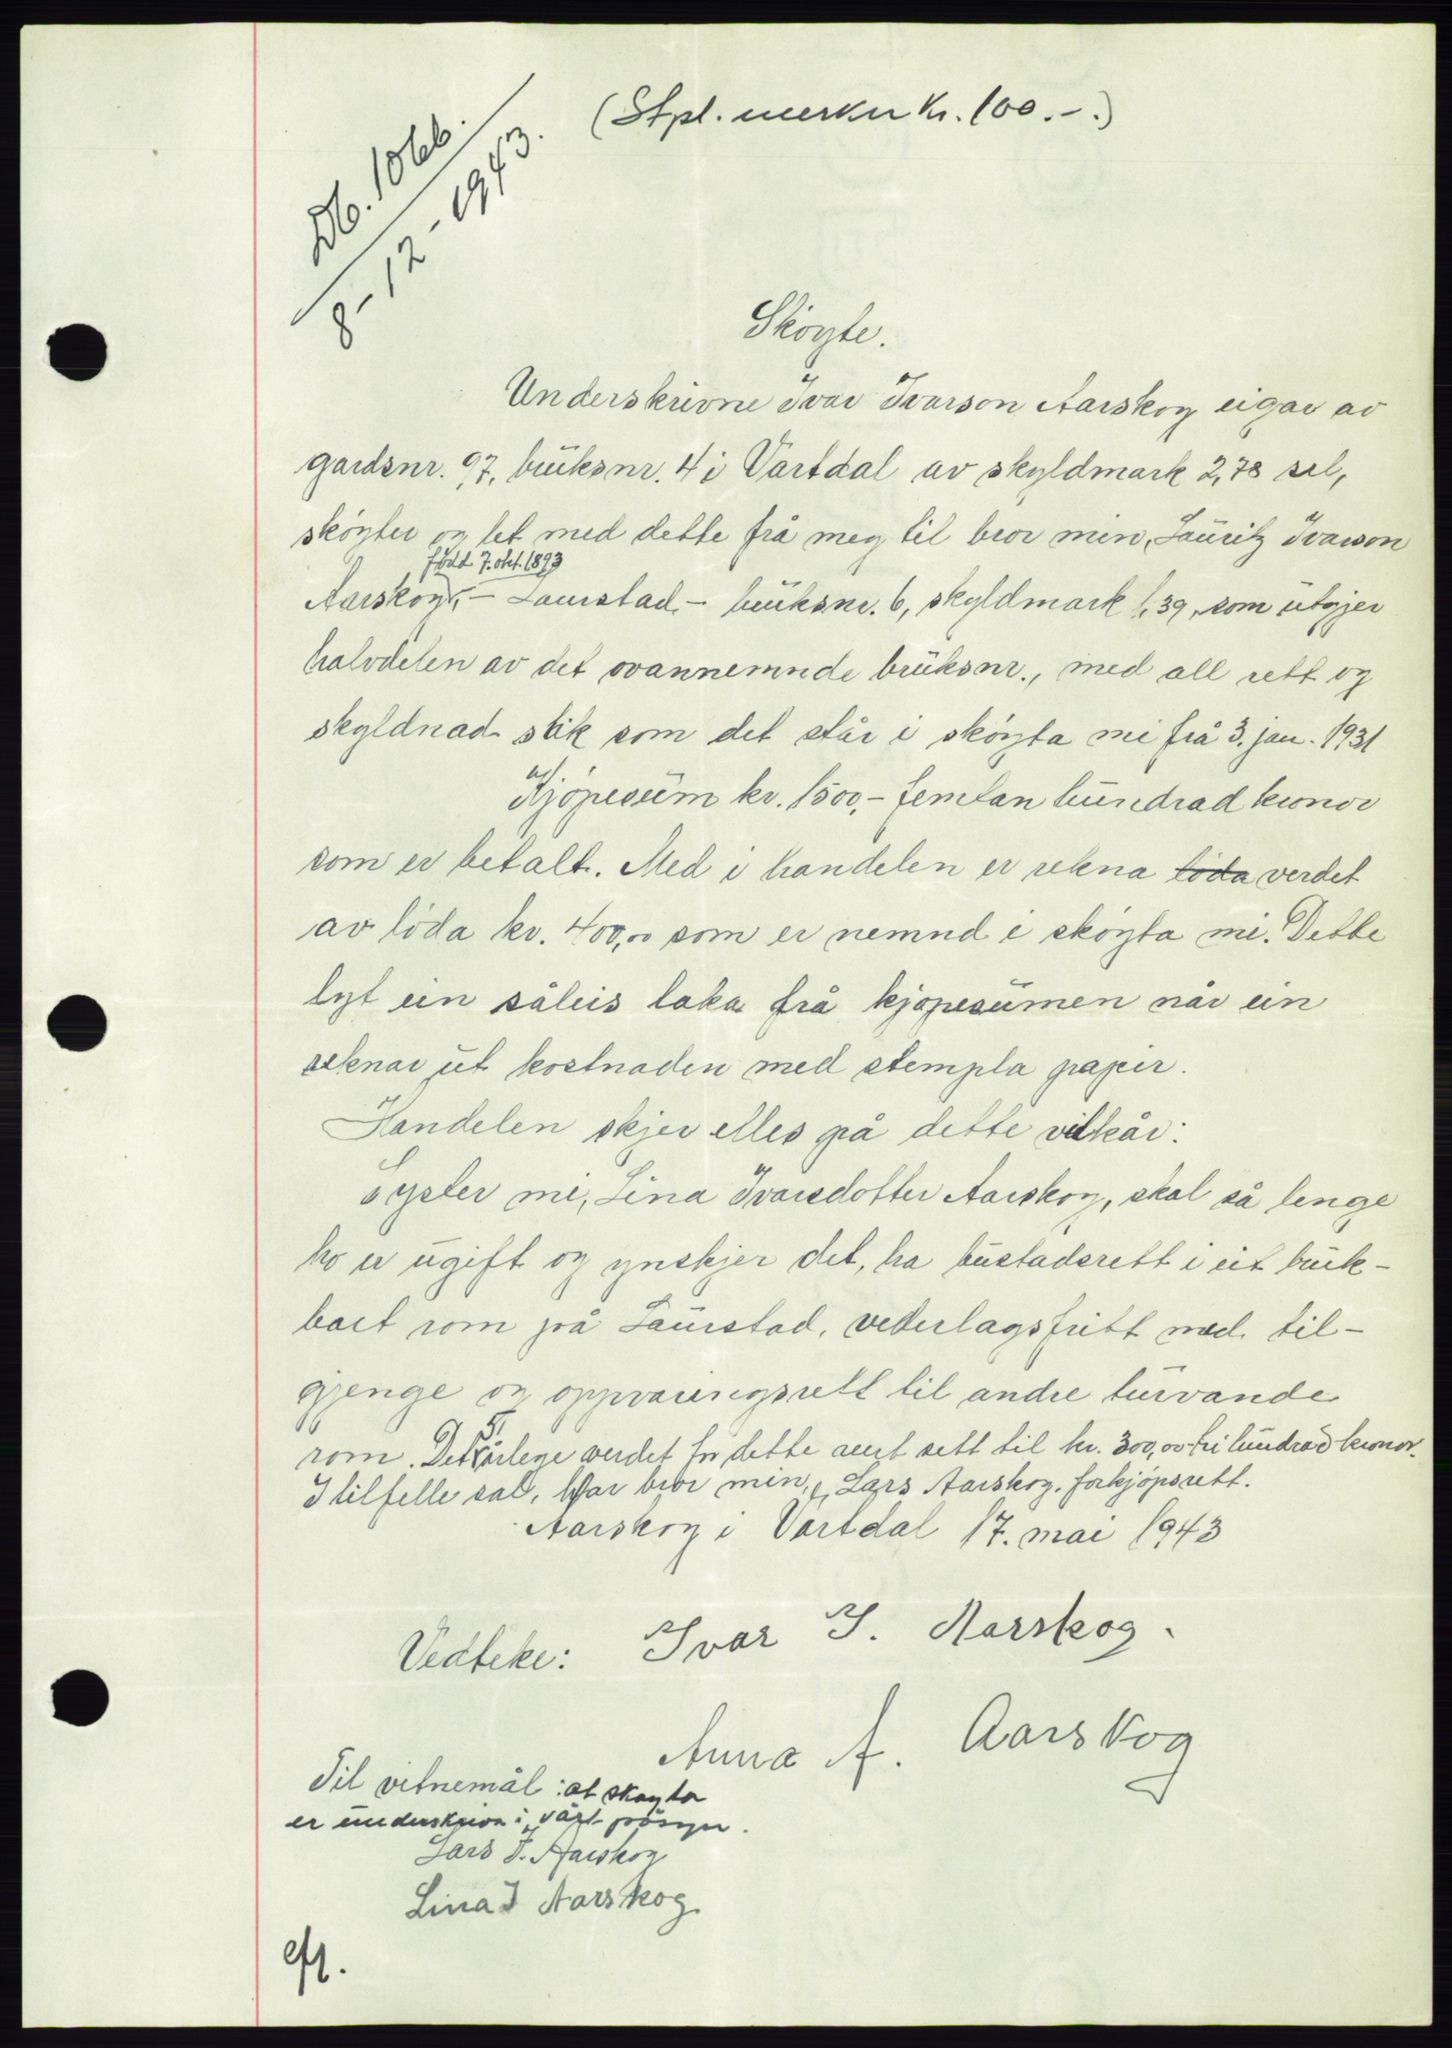 (Stpl. merker kr. 100.-.)
Db. 1066.
8-12-1943.
Sköyte.
Underskrivne Ivar Ivarson Aarskog eigar av
gardsnr. 97, bruksnr. 4 i Vartdal av skyldmark 2,78 sel,
sköyter og let med dette frå meg til bror min, Lauritz Ivarson
född 7. okt. 1893
Aarskog, - Laurstad - bruksnr. 6, skyldmark 1,39, som utgjer
halvdelen av det ovannemnde bruksnr., med all rett og
skyldnad slik som det står i sköyta mi frå 3. jan. 1931
Kjöpesum kr. 1500,- femtan hundrad kronor
som er betalt. Med i handelen er rekna löda verdet
av löda kr. 400,00 som er nemnd i sköyta mi. Dette
lyt ein såleis taka frå kjöpesumen når ein
reknar ut kostnaden med stempla papir.
Handelen skjer elles på dette vilkår:
Syster mi, Lina Ivarsdotter Aarskog, skal så lenge
ho er ugift og ynskjer det, ha bustadsrett i eit bruk-
bart rom på Laurstad, vederlagsfritt med til-
gjenge og oppvaringsrett til andre turvande
rom. Det 5 årlege verdet for dette vert sett til kr. 300,00 tri hundrad kronor.
I tilfelle sal, har bror min, Lars Aarskog, forkjöpsrett.
Aarskog i Vartdal 17. mai 1943
Vedteke: Ivar I. Aarskog.
Anna A. Aarskog
Til vitnemål: at skøyta
er underskriva i vårt påsyn.
Lars I. Aarskog
Lina I Aarskog